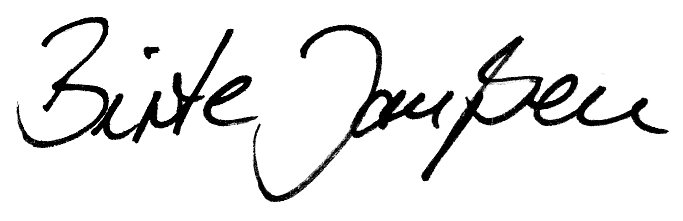 Birte Janßen